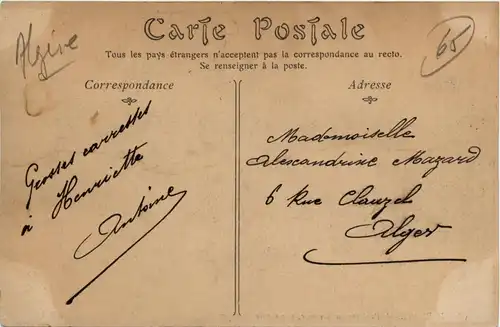 Algérie
65
Carte Postale
Tous les pays étrangers n'acceptent pas la correspondance au recto.
Se renseigner à la poste.
Correspondance
Adresse
Grosses carresses
à Henriette
Antoine
Mademoiselle
Alexandrine Mazard
6 Rue Clauzel
Alger